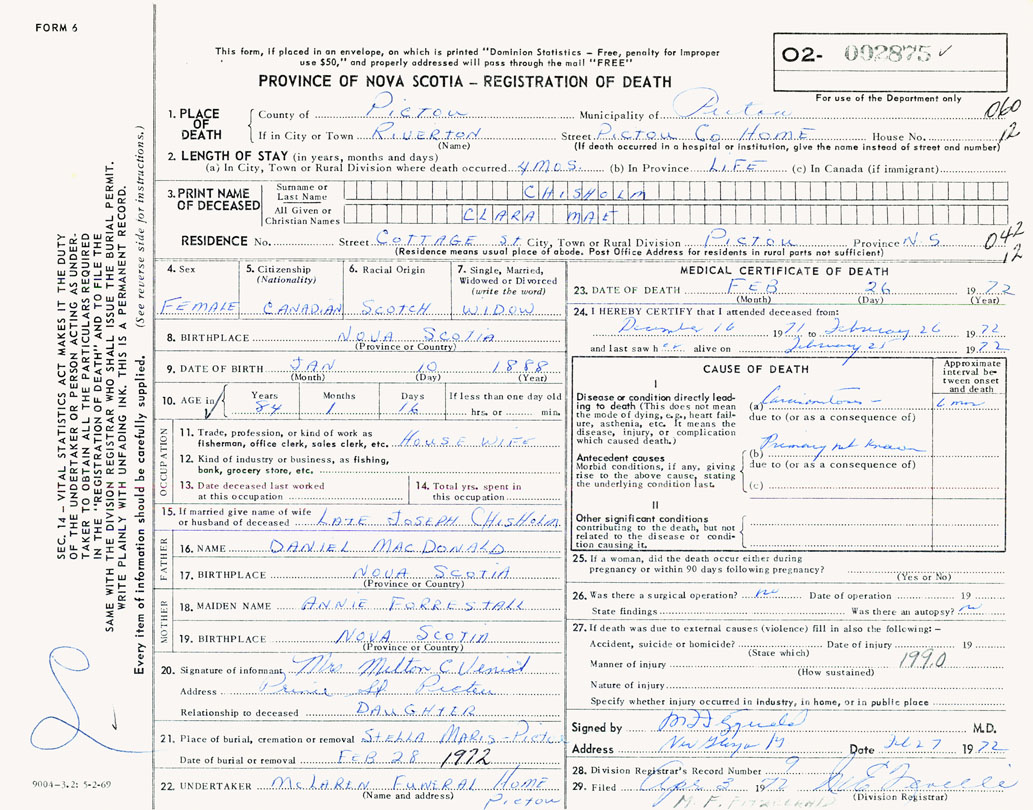 FORM 6
This form, if placed in an envelope, on which is printed "Dominion Statistics – Free, penalty for improper
use $50," and properly addressed will pass through the mail "FREE"
O2- 002875 ✓
PROVINCE OF NOVA SCOTIA – REGISTRATION OF DEATH
For use of the Department only
1. PLACE OF DEATH
County of Pictou Municipality of Pictou 060
If in City or Town RIVERTON Street PICTOU CO HOME House No. 12
(Name) (If death occurred in a hospital or institution, give the name instead of street and number)
2. LENGTH OF STAY (in years, months and days)
(a) In City, Town or Rural Division where death occurred 4 MOS. (b) In Province LIFE (c) In Canada (if immigrant)
3. PRINT NAME OF DECEASED
Surname or Last Name CHISHOLM
All Given or Christian Names CLARA MAE
RESIDENCE No. Street COTTAGE St City, Town or Rural Division PICTOU Province NS 042
(Residence means usual place of abode. Post Office Address for residents in rural parts not sufficient) 12
4. Sex
FEMALE
5. Citizenship (Nationality)
CANADIAN
6. Racial Origin
SCOTCH
7. Single, Married, Widowed or Divorced (write the word)
WIDOW
8. BIRTHPLACE NOVA SCOTIA
(Province or Country)
9. DATE OF BIRTH JAN 10 1888
(Month) (Day) (Year)
10. AGE in Years Months Days If less than one day old
84 1 16 hrs. or min.
OCCUPATION
11. Trade, profession, or kind of work as
fisherman, office clerk, sales clerk, etc. HOUSE WIFE
12. Kind of industry or business, as fishing,
bank, grocery store, etc.
13. Date deceased last worked
at this occupation
14. Total yrs. spent in
this occupation
15. If married give name of wife
or husband of deceased LATE JOSEPH CHISHOLM
FATHER
16. NAME DANIEL MACDONALD
17. BIRTHPLACE NOVA SCOTIA
(Province or Country)
MOTHER
18. MAIDEN NAME ANNIE FORRESTALL
19. BIRTHPLACE NOVA SCOTIA
(Province or Country)
20. Signature of informant Mrs Milton C
Address St Pictou
Relationship to deceased DAUGHTER
21. Place of burial, cremation or removal STELLA MARIS - Pictou
Date of burial or removal FEB 28 1972
22. UNDERTAKER McLAREN FUNERAL HOME
(Name and address) Pictou
MEDICAL CERTIFICATE OF DEATH
23. DATE OF DEATH FEB 26 1972
(Month) (Day) (Year)
24. I HEREBY CERTIFY that I attended deceased from:
December 16 1971 to February 26 1972
and last saw her alive on February 25 1972
CAUSE OF DEATH
Approximate interval between onset and death
I
Disease or condition directly leading to death (This does not mean the mode of dying, e.g., heart failure, asthenia, etc. It means the disease, injury, or complication which caused death.)
(a) 6 mos
due to (or as a consequence of)
(b) Primary not known
Antecedent causes
Morbid conditions, if any, giving rise to the above cause, stating the underlying condition last.
due to (or as a consequence of)
(c)
II
Other significant conditions
contributing to the death, but not related to the disease or condition causing it.
25. If a woman, did the death occur either during
pregnancy or within 90 days following pregnancy?
(Yes or No)
26. Was there a surgical operation? no Date of operation 19
State findings Was there an autopsy? no
27. If death was due to external causes (violence) fill in also the following: –
Accident, suicide or homicide? Date of injury 19
(State which)
Manner of injury 1990
(How sustained)
Nature of injury
Specify whether injury occurred in industry, in home, or in public place
Signed by M.D.
Address Date Feb 27 1972
28. Division Registrar's Record Number 9
29. Filed Apr 3 1972
(Division Registrar)
SEC. 14 – VITAL STATISTICS ACT MAKES IT THE DUTY
OF THE UNDERTAKER OR PERSON ACTING AS UNDER-
TAKER TO OBTAIN ALL THE PARTICULARS REQUIRED
IN THE "REGISTRATION OF DEATH" AND TO FILE THE
SAME WITH THE DIVISION REGISTRAR WHO SHALL ISSUE THE BURIAL PERMIT.
WRITE PLAINLY WITH UNFADING INK. THIS IS A PERMANENT RECORD.
Every item of information should be carefully supplied. (See reverse side for instructions.)
9004-3.2: 5-2-69